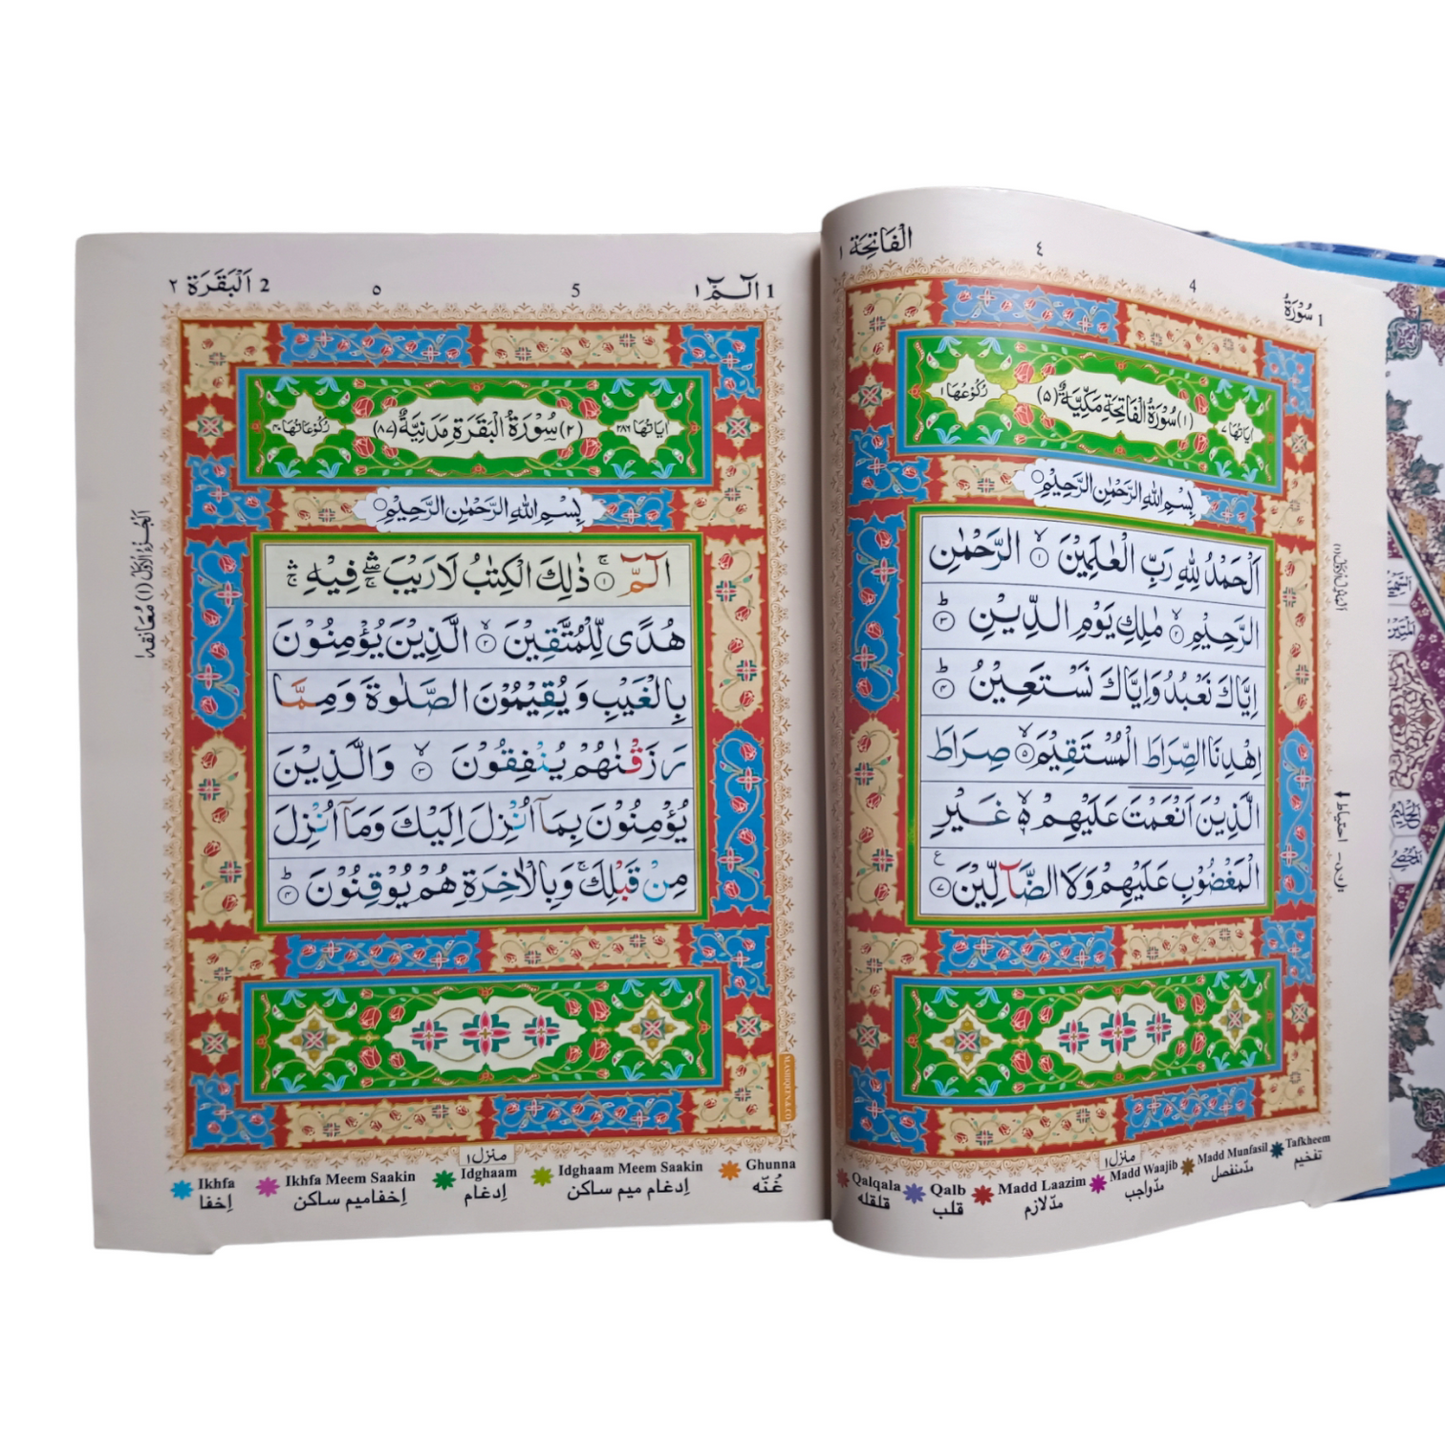 1 سُوْرَةُ
4
٤
الْفَاتِحَة ١
اٰيَاتُهَا ٧
(١) سُوْرَةُ الْفَاتِحَةِ مَكِّيَّةٌ (٥)
رُكُوْعُهَا ١
بِسْمِ اللهِ الرَّحْمٰنِ الرَّحِيْمِ ○
اَلْحَمْدُ لِلّٰهِ رَبِّ الْعٰلَمِيْنَ ۙ ١ الرَّحْمٰنِ
الرَّحِيْمِ ۙ ٢ مٰلِكِ يَوْمِ الدِّيْنِ ؕ ٣
اِيَّاكَ نَعْبُدُ وَاِيَّاكَ نَسْتَعِيْنُ ؕ ٤
اِهْدِنَا الصِّرَاطَ الْمُسْتَقِيْمَ ۙ ٥ صِرَاطَ
الَّذِيْنَ اَنْعَمْتَ عَلَيْهِمْ ۙ٦ غَيْرِ
الْمَغْضُوْبِ عَلَيْهِمْ وَلَا الضَّآلِّيْنَ ٧
منزل ١
Qalqala
قلقله
Qalb
قلب
Madd Laazim
مدّ لازم
Madd Waajib
مدّ واجب
Madd Munfasil
مدّ منفصل
Tafkheem
تفخیم
1 الٓـمّٓ ١
5
٥
2 اَلْبَقَرَة ٢
اٰيَاتُهَا ٢٨٦
(٢) سُوْرَةُ الْبَقَرَةِ مَدَنِيَّةٌ (٨٧)
رُكُوْعَاتُهَا ٤٠
بِسْمِ اللهِ الرَّحْمٰنِ الرَّحِيْمِ ○
الٓمّٓ ۚ ١ ذٰلِكَ الْكِتٰبُ لَا رَيْبَ ۛۖ فِيْهِ ۛۚ
هُدًى لِّلْمُتَّقِيْنَ ۙ ٢ الَّذِيْنَ يُؤْمِنُوْنَ
بِالْغَيْبِ وَيُقِيْمُوْنَ الصَّلٰوةَ وَمِمَّا
رَزَقْنٰهُمْ يُنْفِقُوْنَ ۙ ٣ وَالَّذِيْنَ
يُؤْمِنُوْنَ بِمَآ اُنْزِلَ اِلَيْكَ وَمَآ اُنْزِلَ
مِنْ قَبْلِكَ ۚ وَبِالْاٰخِرَةِ هُمْ يُوْقِنُوْنَ ؕ ٤
اَلْجُزْءُ الْاَوَّلُ (١) مُعَانقه ١
منزل ١
Ikhfa
اِخفا
Ikhfa Meem Saakin
اِخفا میم ساکن
Idghaam
اِدغام
Idghaam Meem Saakin
اِدغام میم ساکن
Ghunna
غُنّه